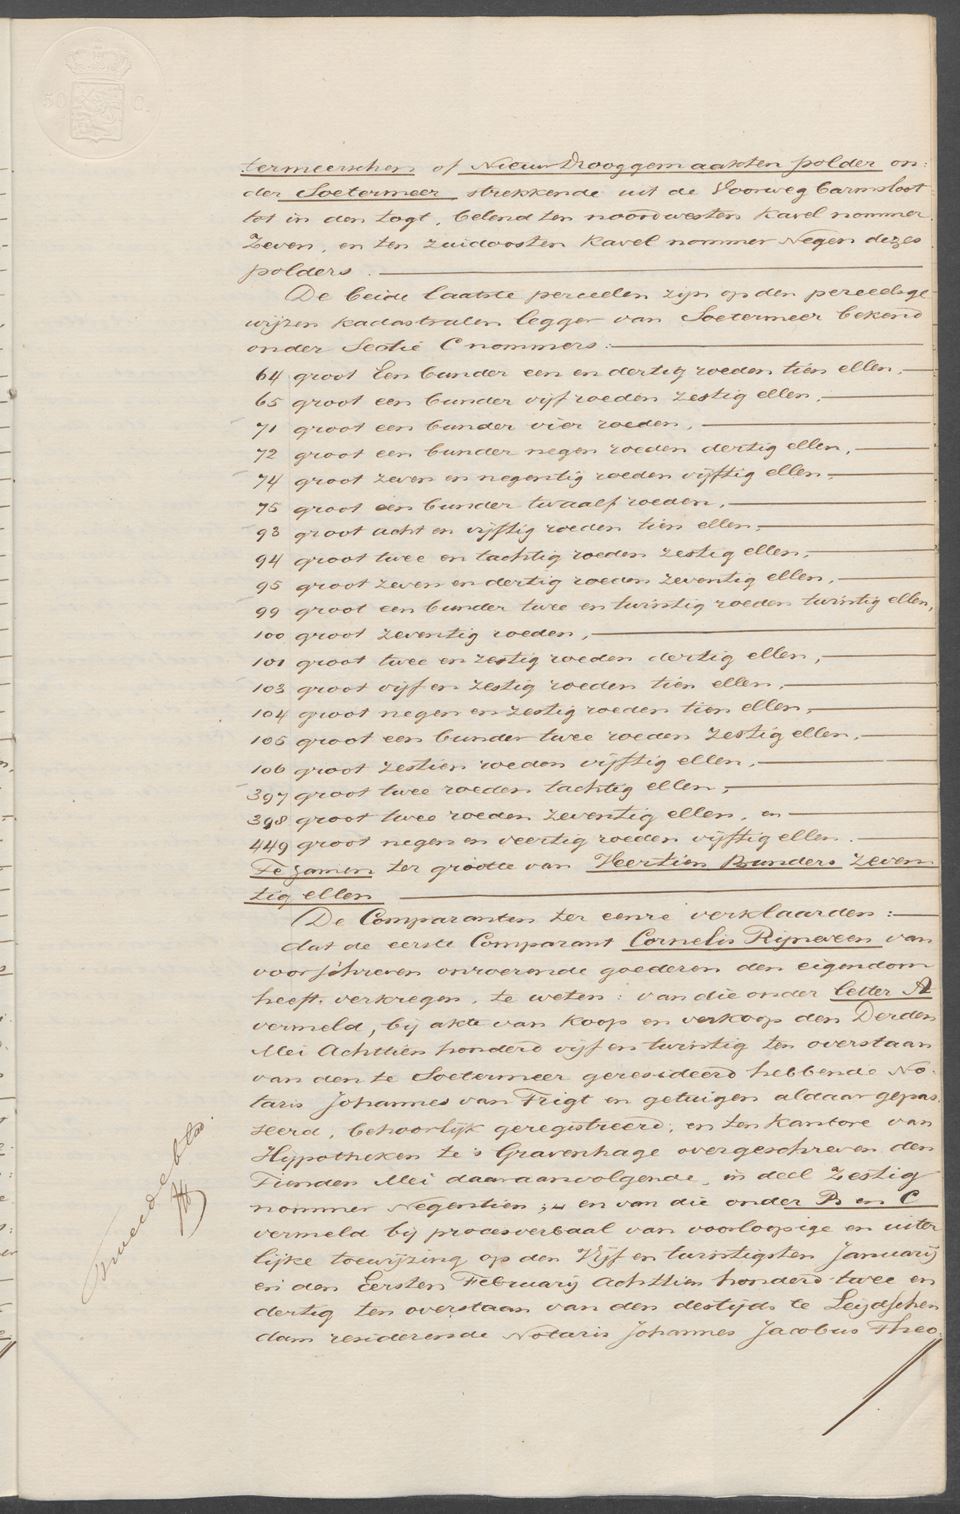 50 C.
termeerschen of Nieuw Drooggemaakten polder on:
der Soetermeer strekkende uit de Voorweg barmsloot
tot in den togt, belend ten noordwesten Kavel nommer
Zeven, en ten zuidoosten Kavel nommer Negen dezes
polders.
De beide laatste perceelen zijn op den perceelsge
wijzen kadastralen legger van Soetermeer bekend
onder Sectie C nommers:
64 groot Een bunder een en dertig roeden tien ellen,
65 groot een bunder vijf roeden zestig ellen,
71 groot een bunder vier roeden,
72 groot een bunder negen roeden dertig ellen,
74 groot zeven en negentig roeden vijftig ellen,
75 groot een bunder twaalf roeden,
93 groot acht en vijftig roeden tien ellen,
94 groot twee en tachtig roeden zestig ellen,
95 groot zeven en dertig roeden zeventig ellen,
99 groot een bunder twee en twintig roeden twintig ellen,
100 groot zeventig roeden,
101 groot twee en zestig roeden dertig ellen,
103 groot vijf en zestig roeden tien ellen,
104 groot negen en zestig roeden tien ellen,
105 groot een bunder twee roeden zestig ellen,
106 groot zestien roeden vijftig ellen,
397 groot twee roeden tachtig ellen,
398 groot twee roeden zeventig ellen, en
449 groot negen en veertig roeden vijftig ellen.
Te zamen ter grootte van Veertien Bunders Zeven
tig ellen
De Comparanten ter eenre verklaarden:
dat de eerste Comparant Cornelis Rijneveen van
voorschreven onroerende goederen den eigendom
heeft verkregen, te weten: van die onder letter A
vermeld, bij akte van koop en verkoop den Derden
Mei Achttien honderd vijf en twintig ten overstaan
van den te Soetermeer geresideerd hebbende No-
taris Johannes van Trigt en getuigen aldaar gepas
seerd, behoorlijk geregistreerd, en ten kantore van
Hypotheken te 's Gravenhage overgeschreven den
Tienden Mei daaraanvolgende, in deel Zestig
nommer Negentien; en van die onder B en C
vermeld bij procesverbaal van voorloopige en uiter
lijke toewijzing op den Vijf en twintigsten Januarij
en den Eersten Februarij Achttien honderd twee en
dertig ten overstaan van den destijds te Leijdschen
dam residerende Notaris Johannes Jacobus Theo: